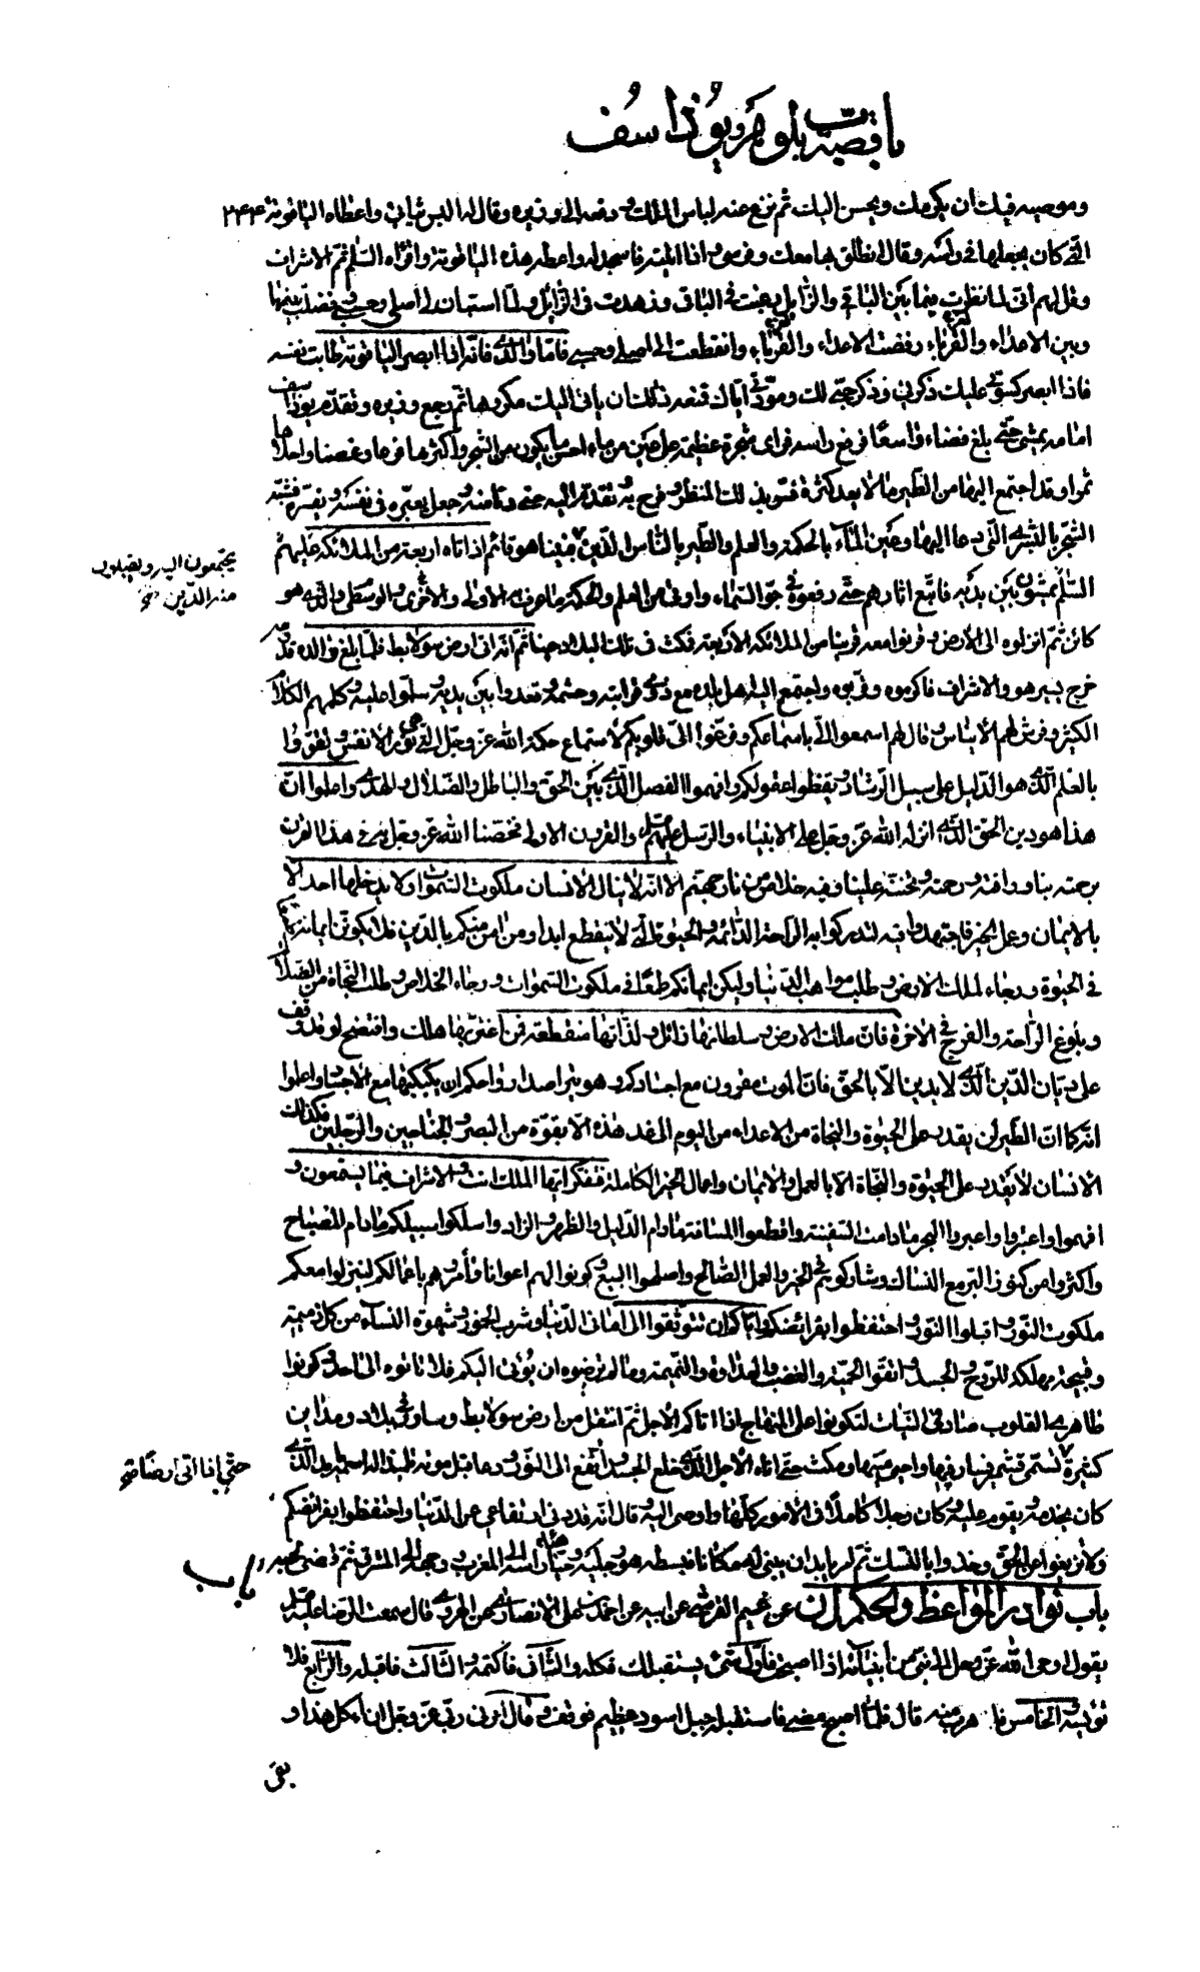 باب قصة بلوهر ويوذاسف
وموصيه فيك ان يكرمك ويحسن اليك ثم نزع عنه لباس الملك ودفعه الى وزيره وقال له البس ثيابي واعطاه الياقوتة ٢٤٤
التي كان يجعلها في راسه وقال انطلق بها معك وفرسي واذا اتيته فاسجد له واعطه هذه الياقوتة واقرأه السلام ثم الاشراف
وقل لهم اني لما نظرت فيما بين الباقي والزائل رغبت في الباقي وزهدت في الزائل ولما استبان لي اصلي وحسبي وفضلت بينهما
وبين الاعداء والقرباء رفضت الاعداء والقرباء وانقطعت الى اصلي وحسبي فاما والدي فانه اذا ابصر الياقوتة طابت نفسه
فاذا ابصر كسوتي عليك ذكرني وذكر حبي لك ومودتي اياك فمنعه ذلك ان ياتي اليك مكروها ثم رجع وزيره وتقدم يوذاسف
امامه يمشي حتى بلغ فضاء واسعا فرفع راسه فراى شجرة عظيمة على عين من ماء احسن ما يكون من الشجر واكثرها فرعا وغصنا واحلاها
ثمرا وقد اجتمع اليها من الطير ما لا يعد كثرة فسر بذلك المنظر وفرح به وتقدم اليه حتى دنا منه وجعل يعبره في نفسه ويفسره فشبه
الشجر بالبشرى التي دعا اليها وعين الماء بالحكمة والعلم والطير بالناس الذين فبينا هو قائم اذ اتاه اربعة من الملائكة عليهم
السلام يمشون بين يديه فاتبع اثارهم حتى رفعوه في جو السماء واوتي من العلم والحكمة ما عرف به الاولى والاخرى والوسطى والذي هو
كائن ثم انزلوه الى الارض وقرنوا معه قرينا من الملائكة الاربعة فمكث في تلك البلاد حينا ثم انه اتى ارض سولابط فلما بلغ والده قدومه
خرج يسير هو والاشراف فاكرموه وقربوه واجتمع اليه اهل بلده مع ذوي قرابته وحشمه وقعدوا بين يديه وسلموا عليه وكلمهم الكلام
الكثير وفرش لهم الايناس وقال لهم اسمعوا الي باسماعكم وفرغوا الي قلوبكم لاستماع حكمة الله عز وجل التي هي نور الانفس وثقوا
بالعلم الذي هو الدليل على سبيل الرشاد وايقظوا عقولكم وافهموا الفصل الذي بين الحق والباطل والضلال والهدى واعلموا ان
هذا هو دين الحق الذي انزله الله عز وجل على الانبياء والرسل عليهم والقرون الاولى فخصنا الله عز وجل به في هذا القرن
برحمته بنا ورافته ورحمته وتحننه علينا وفيه خلاص من نار جهنم الا انه لا ينال الانسان ملكوت السموات ولا يدخلها احد الا
بالايمان وعمل الخير فاجتهدوا فيه لتدركوا به الراحة الدائمة والحيوة التي لا تنقطع ابدا ومن امن منكم بالدين فلا يكونن ايمانه طمعا
في الحيوة ورجاء لملك الارض وطلب مواهب الدنيا وليكن ايمانكم طمعا في ملكوت السموات ورجاء الخلاص وطلب النجاة من الضلالة
وبلوغ الراحة والفرج في الاخرة فان ملك الارض وسلطانها زائل ولذاتها منقطعة فمن اغتر بها هلك وافتضح لو قد وقف
على ديان الدين الذي لا يدين الا بالحق فان الموت مقرون مع اجسادكم وهو يتراصد ارواحكم ان يكبكبها مع الاجساد واعلموا
انه كما ان الطير لن يقدر على الحيوة والنجاة من الاعداء من اليوم الى غد هذه الا بقوة من البصر والجناحين والرجلين فكذلك
الانسان لا يقدر على الحيوة والنجاة الا بالعمل والايمان واعمال الخير الكاملة ففكر ايها الملك انت والاشراف فيما يستمعون و
افهموا واعتبروا واعبروا البحر ما دامت السفينة واقطعوا المسافة ما دام الدليل والظهر والزاد واسلكوا سبيلكم ما دام المصباح
واكثروا من كنوز البر مع النساك وشاركوهم في الخير والعمل الصالح واصلحوا التبع وكونوا لهم اعوانا وأمروهم باعمالكم لينزلوا معكم
ملكوت النور واقبلوا النور واحتفظوا بفرائضكم واياكم ان تتوثقوا الى اماني الدنيا وشرب الخمور وشهوة النساء من كل ذميمة
وقبيحة مهلكة للروح والجسد واتقوا الحمية والغضب والعداوة والنميمة وما لم ترضوه ان يؤتى اليكم فلا تاتوه الى احد وكونوا
طاهري القلوب صادقي النيات لتكونوا على المنهاج اذا اتاكم الاجل ثم انتقل من ارض سولابط وسار في بلاد ومداين
كثيرة فسار فيها واحيى ميتها ومكث حتى اتاه الاجل الذي خلع الجسد وارتفع الى النور ودعا قبل موته تلميذا له اسمه الذي
كان يخدمه ويقوم عليه وكان رجلا كاملا في الامور كلها واوصى اليه وقال انه قد دنا ارتفاعي عن الدنيا واحتفظوا بفرائضكم
ولا تزيغوا عن الحق وخذوا بالنسك ثم امر يابد ان يبني له مكانا فبسط هو رجليه وهيأ راسه الى المغرب ووجهه الى المشرق ثم قضى نحبه
باب نوادر المواعظ والحكم ن عن تميم القرشي عن ابيه عن احمد بن علي الانصاري عن الهروي قال سمعت الرضا عليه
يقول اوحى الله عز وجل الى نبي من انبيائه اذا اصبحت فاول شيء يستقبلك فكله والثاني فاكتمه والثالث فاقبله والرابع فلا
تؤيسه والخامس فاهرب منه قال فلما اصبح مضى فاستقبله جبل اسود عظيم فوقف وقال امرني ربي عز وجل ان اكل هذا و
بقى
يجتمعون اليه ويقبلون
منه الدين خ
حتى اذا اتى ارضا خ
باب